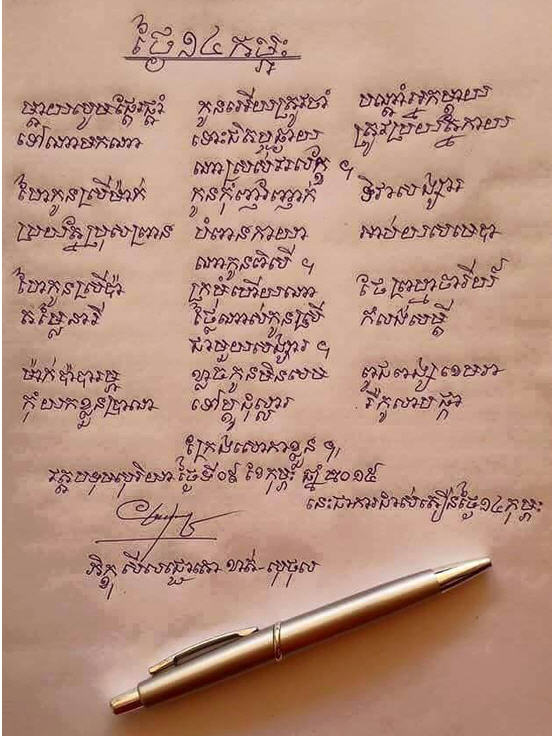 ថ្ងៃ១៤កុម្ភៈ
ម្តាយសូមផ្តែផ្តាំ កូនអើយត្រូវចាំ បណ្តាំអ្នកម្តាយ
ទៅណាមកណា ទោះជិតឬឆ្ងាយ ត្រូវប្រយ័ត្នកាយ
ណាស្រស់ជាស័ក្តិ ។
ហៃកូនស្រីម៉ាក់ កូនកុំញ៉ាំញ៉ាក់ ទិវាសង្សារ
ប្រយ័ត្នប្រុសព្រាន បំពានកាយា អាប់យសសេដា
ណាកូនពិសី ។
ហៃកូនស្រីប៉ា ក្រមុំហើយណា ចៃព្រហ្មចារីយ៍
តម្លៃនារី ថ្លៃណាស់កូនស្រី កំលង់សម្តី
ជាមួយសង្សារ ។
ម៉ាក់ប៉ាបារម្ភ ខ្លាចកូនមិនសម ពួជពង្សខេមរា
កុំយកខ្លួនប្រាណ ទៅប្តូរដុល្លារ រឺកុលាបផ្កា
ក្រែងសោកាខ្លួន ។
វត្តបទុមសុរិយា ថ្ងៃទី០៩ ខែកុម្ភៈ ឆ្នាំ ២០១៥
នេះជាការដាស់តឿនថ្ងៃ១៤កុម្ភៈ
ភិក្ខុ សីលបញ្ញាតោ